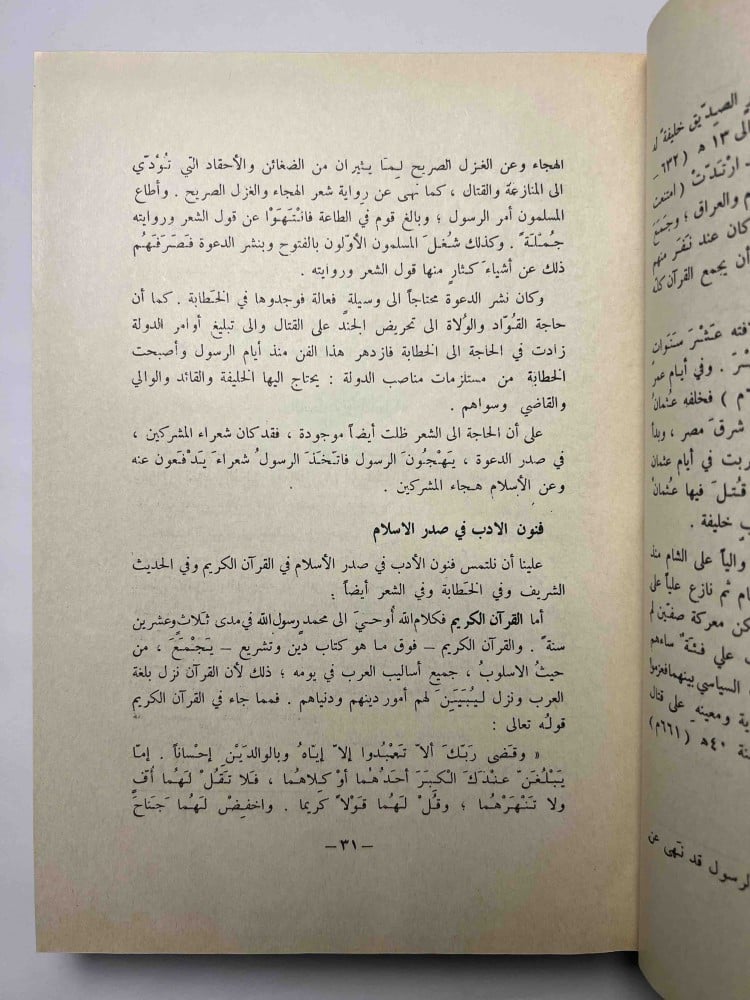 الهجاء وعن الغزل الصريح لِمَا يثيران من الضغائن والأحقاد التي تُؤدّي
الى المنازعة والقتال ، كما نهى عن رواية شعر الهجاء والغزل الصريح . وأطاع
المسلمون أمر الرسول ؛ وبالغ قوم في الطاعة فانْتَهَوْا عن قول الشعر وروايته
جُمْلَةً . وكذلك شُغلَ المسلمون الأوّلون بالفتوح وبنشر الدعوة فصَرَفَهُم
ذلك عن أشياءَ كثارٍ منها قول الشعر وروايته .
وكان نشر الدعوة محتاجاً الى وسيلةٍ فعالة فوجدوها في الخَطابة . كما أن
حاجة القُوّاد والوُلاة الى تحريض الجندِ على القتال والى تبليغ أوامر الدولة
زادت في الحاجة الى الخطابة فازدهر هذا الفن منذ أيام الرسول وأصبحت
الخطابَة من مستلزمات مناصب الدولة : يحتاج اليها الخليفة والقائد والوالي
والقاضي وسواهم .
على أن الحاجة الى الشعر ظلت أيضاً موجودة ، فقد كان شعراء المشركين ،
في صدر الدعوة ، يَهْجُونَ الرسول فاتّخَذَ الرسولُ شعراءَ يَدْفَعون عنه
وعن الأسلام هجاء المشركين .
فنون الادب في صدر الاسلام
علينا أن نلتمس فنون الأدب في صدر الأسلام في القرآن الكريم وفي الحديث
الشريف وفي الخَطابة وفي الشعر أيضاً :
أما القرآن الكريم فكلام الله أُوحيَ الى محمد رسول الله في مدى ثلاث وعشرين
سنةً . والقرآن الكريم – فوق ما هو كتاب دين وتشريع – يَجْمَعَ ، من
حيثُ الاسلوبُ ، جميع أساليب العرب في يومه ؛ ذلك لأن القرآن نزل بلغة
العرب ونزل ليُبَيّنَ لهم أمور دينهم ودنياهم . فمما جاء في القرآن الكريم
قولُه تعالى :
« وقضى رَبّكَ ألاّ تَعْبُدوا إلاّ إيّاهُ وبالوالدَيْنِ إحْساناً . إمّا
يَبْلُغَنّ عنْدَكَ الكبَرَ أحَدُهُما أوْ كِلاهُما ، فَلا تَقُلْ لَهُما أُفٍّ
ولا تَنْهَرْهُما ؛ وقُلْ لَهُما قَوْلاً كَريما . واخفِضْ لَهُما جَناحَ
– ٣١ –
الصديق خليفة
١٣ هـ (٦٣٢
ارْتَدّتْ (امتنعت
والعراق ؛ وجَمَعَ
كان عند نَفَر منهم
أن يجمع القرآن كلّ
عَشْرَ سَنَوات
. وفي أيام عمر
) فخلفه عثمانُ
شرق مصر ، وبدأ
في أيام عثمان
قُتلَ فيها عثمانُ
خليفة .
والياً على الشام منذ
ثم نازع علياً على
معركة صفين لم
علي فئةٌ ساءهم
السياسي بينهما فعزموا
ومعينه على قتال
٤٠ هـ (٦٦١م)
الرسول قد نهى عن